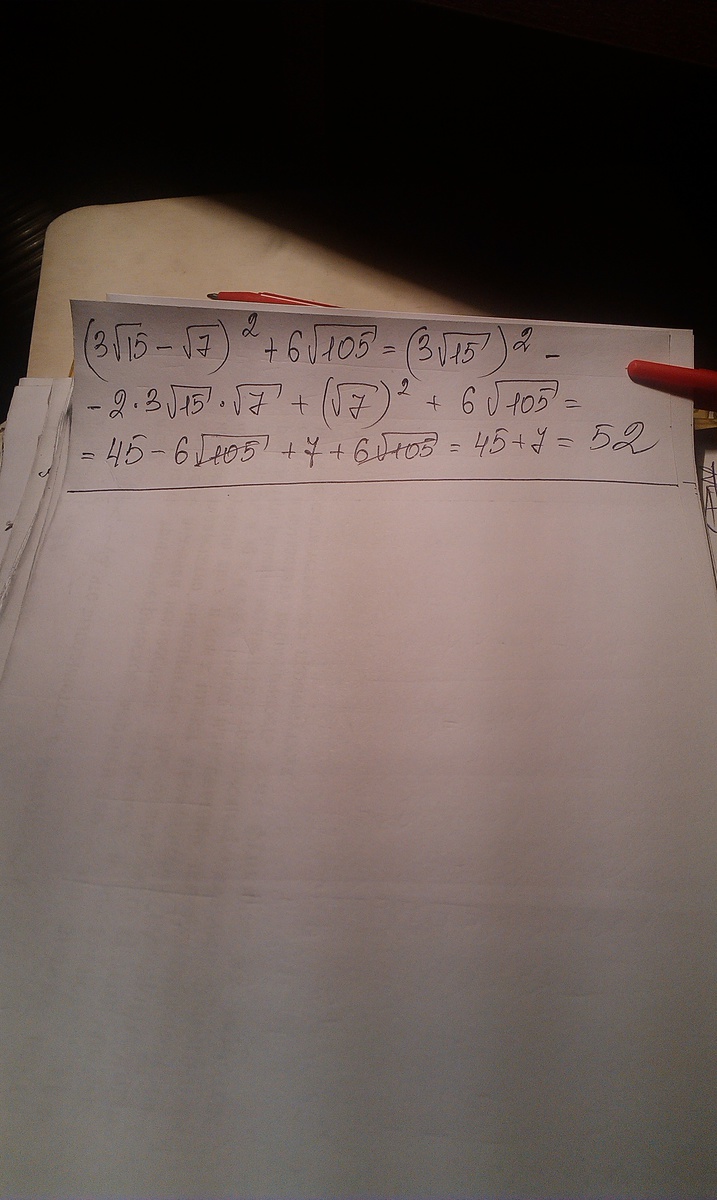 (3√15 − √7)² + 6√105 = (3√15)² −
− 2 · 3√15 · √7 + (√7)² + 6√105 =
= 45 − 6√105 + 7 + 6√105 = 45 + 7 = 52